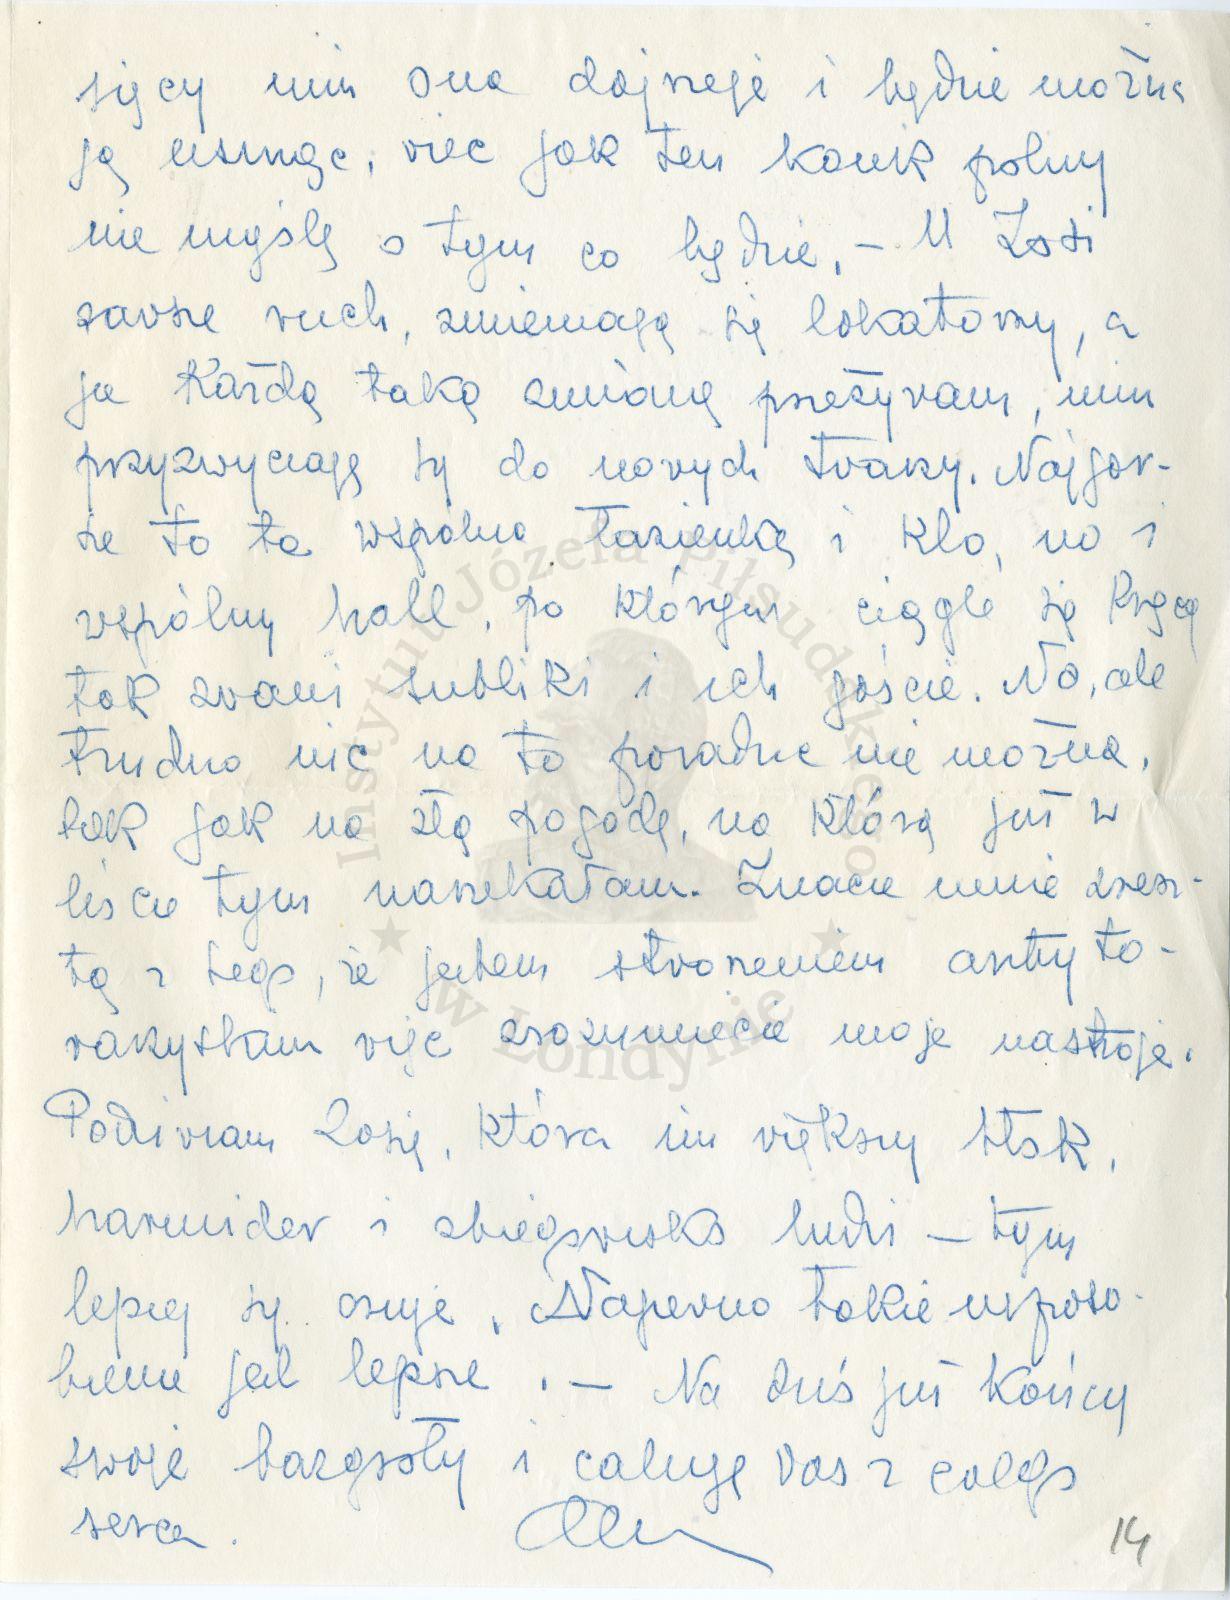 sięcy nim ona dojrzeje i będzie można
ją usunąć, więc jak ten konik polny
nie myślę o tym co będzie. – U Zosi
zawsze ruch, zmieniają się lokatorzy, a
ja każdą taką zmianę przeżywam, nim
przyzwyczaję się do nowych twarzy. Najgor-
sze to ta wspólna łazienka i klo, no i
wspólny hall, po którym ciągle się kręcą
tak zwani subliki i ich goście. No, ale
trudno nic na to poradzić nie można,
tak jak na złą pogodę, na którą już w
liście tym narzekałam. Znacie mnie zresz-
tą z tego, że jestem stworzeniem antyto-
warzyskim więc zrozumiecie moje nastroje.
Podziwiam Zosię, która im większy tłok,
harmider i zbiegowisko ludzi – tym
lepiej się czuje. Napewno takie usposo-
bienie jest lepsze. – Na dziś już kończę
swoje bazgroły i całuję Was z całego
serca.
14
Instytut Józefa Piłsudskiego
w Londynie